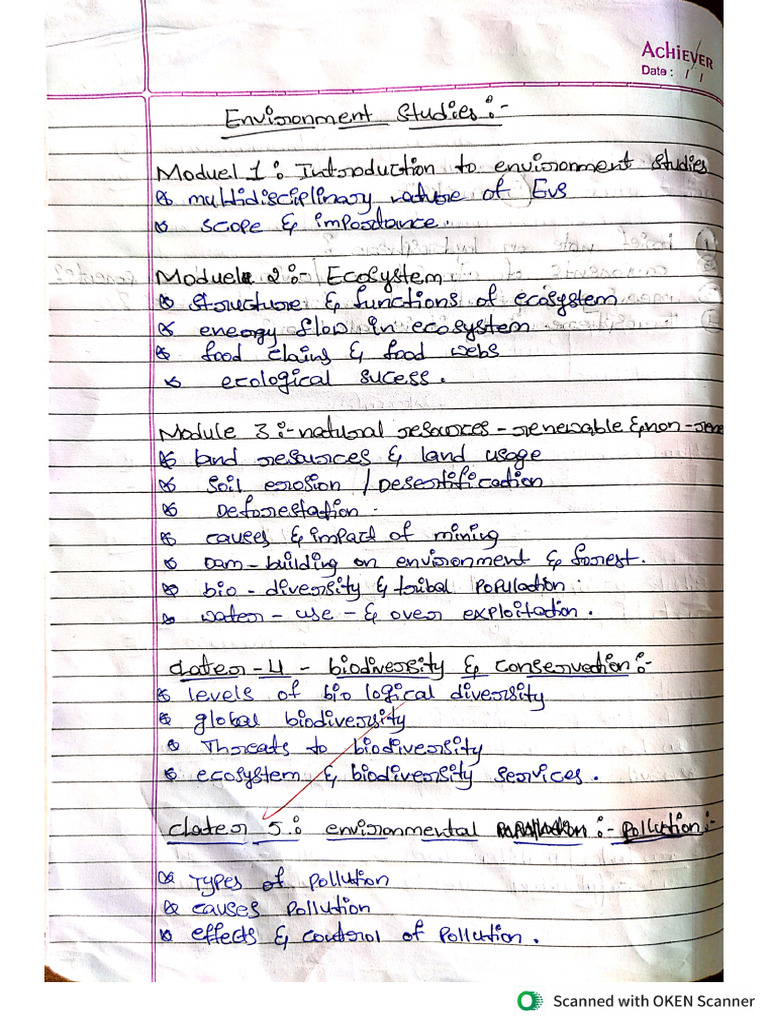 AcHiEVER
Date : / /
Environment Studies :-
Moduel 1 : Introduction to environment studies
multidisciplinary nature of Evs
scope & importance.
Moduele 2 :- Ecosystem
structure & functions of ecosystem
energy flow in ecosystem
food chains & food webs
ecological sucess.
Module 3 :- natural resources - renewable & non - rene
land resources & land usage
soil erosion / Desertification
Deforestation.
causes & impact of mining
Dam - building on environment & forest.
bio - diversity & tribal population.
water - use - & over exploitation.
clater - 4 - biodiversity & conservation :-
levels of bio logical diversity
global biodiversity
Threats to biodiversity
ecosystem & biodiversity services.
clater 5 : environmental :- pollution :-
Types of pollution
causes pollution
effects & control of pollution.
Scanned with OKEN Scanner